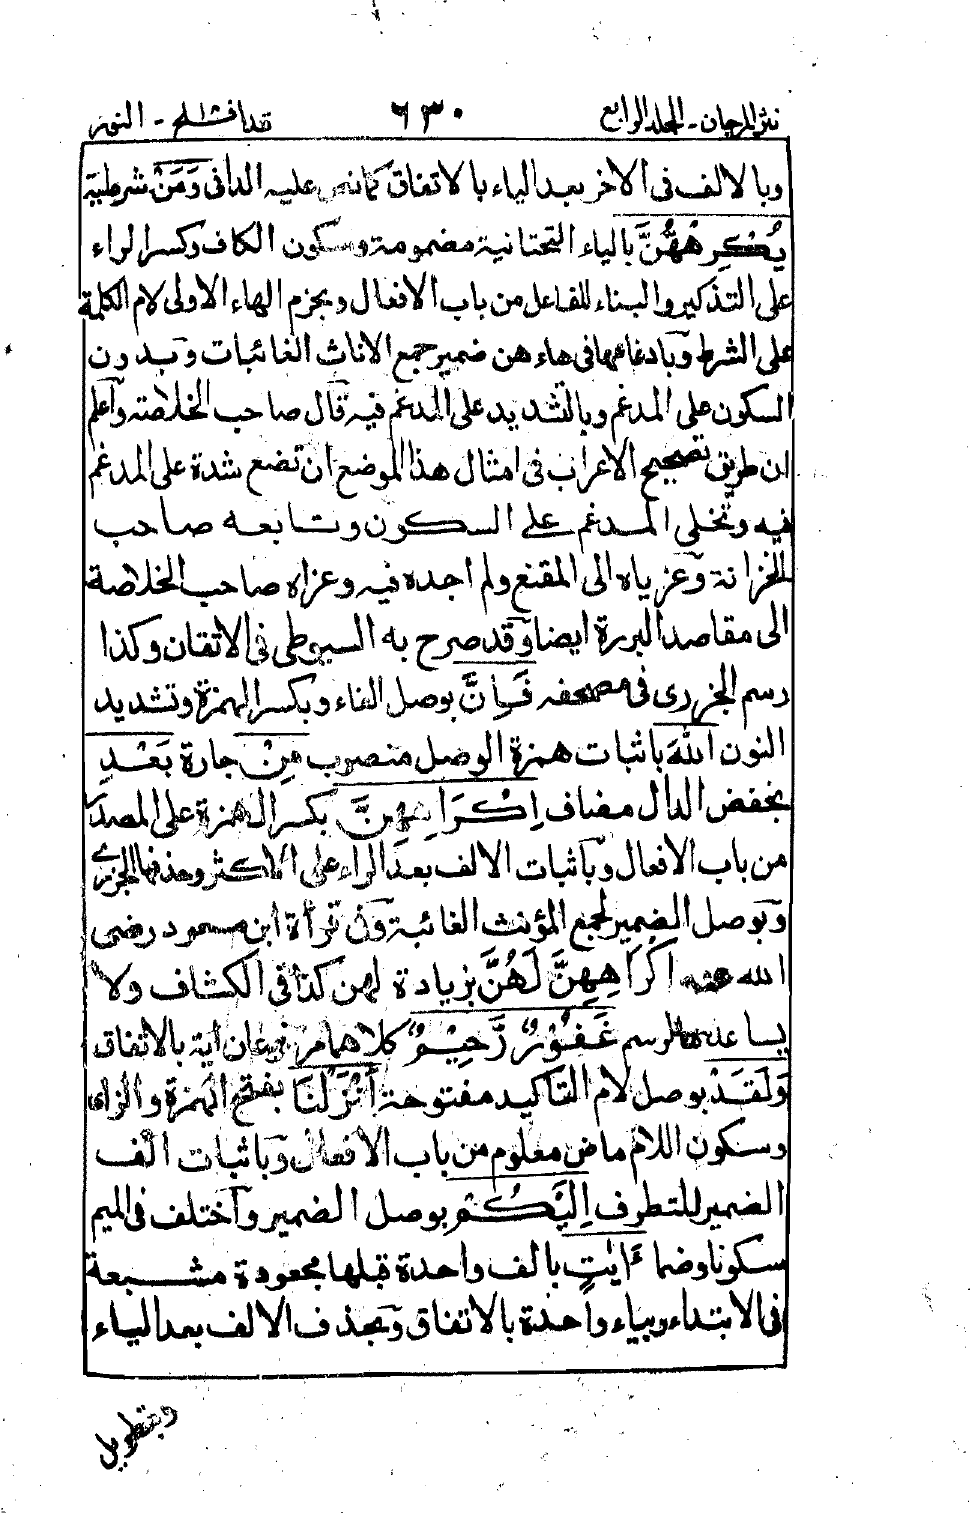 نثر المرجان - المجلد الرابع ٦٣٠ قد افلح ١٨ - النور
وبالالف فى الاخر بعد الياء بالاتفاق كما نص عليه الدانى وَمَنْ شرطية
يُكْرِهْهُّنَّ بالياء التحتانية مضمومة وسكون الكاف وكسر الراء
على التذكير والبناء للفاعل من باب الافعال وبجزم الهاء الاولى لام الكلمة
على الشرط وبادغامها فى هاء هن ضمير جمع الاناث الغائبات وبدون
السكون على المدغم وبالتشديد على المدغم فيه قال صاحب الخلاصة وآعلم
ان طريق تصحيح الاعراب فى امثال هذا الموضع ان تضع شدة على المدغم
فيه وتخلى المدغم على السكون وتابعه صاحب
الخزانة وعزياه الى المقنع ولم اجده فيه وعزاه صاحب الخلاصة
الى مقاصد البررة ايضا وقد صرح به السيوطى فى الاتقان وكذا
رسم الجزرى فى مصحفه فَاِنَّ بوصل الفاء وبكسر الهمزة وتشديد
النون اللهَ باثبات همزة الوصل منصوب مِنْ جارة بَعْدِ
بخفض الدال مضاف اِكْرَاهِهِنَّ بكسر الهمزة على المصدر
من باب الافعال وباثبات الالف بعد الراء على الاكثر وحذفها الجزرى
وبوصل الضمير لجمع المؤنث الغائبة وفى قرأة ابن مسعود رضى
الله عنه اكْرَاهِهِنَّ لَهُنَّ بزيادة لهن كذا فى الكشاف ولا
يساعده الرسم غَفُوْرٌ رَّحِيْمٌ كلاهما مرفوعان اية بالاتفاق
وَلَقَدْ بوصل لام التاكيد مفتوحة اَنْزَلْنَا بفتح الهمزة والزاى
وسكون اللام ماض معلوم من باب الافعال وباثبات الف
الضمير للتطرف اِلَيْكُمْ بوصل الضمير وآختلف فى الميم
سكونا وضما ءايٰتٍ بالف واحدة قبلها مجعودة مشبعة
فى الابتداء وبياء واحدة بالاتفاق وبحذف الالف بعد الياء
وبتطويل